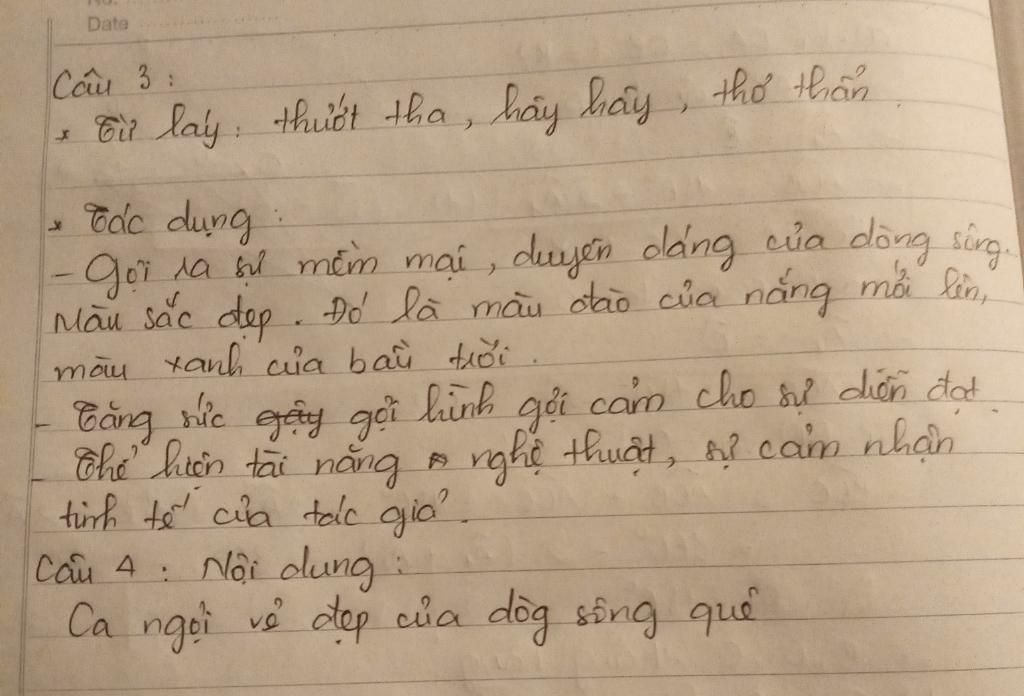 No.
Date
Câu 3 :
* Từ láy : thướt tha, hây hây, thơ thẩn.
* Tác dụng :
- Gợi ra sự mềm mại, duyên dáng của dòng sông.
Màu sắc đẹp. Đó là màu đào của nắng mới lên,
màu xanh của bầu trời.
- Tăng sức gây gợi hình gợi cảm cho sự diễn đạt.
- Thể hiện tài năng nghệ thuật, sự cảm nhận
tinh tế của tác giả.
Câu 4 : Nội dung :
Ca ngợi vẻ đẹp của dòg sông quê